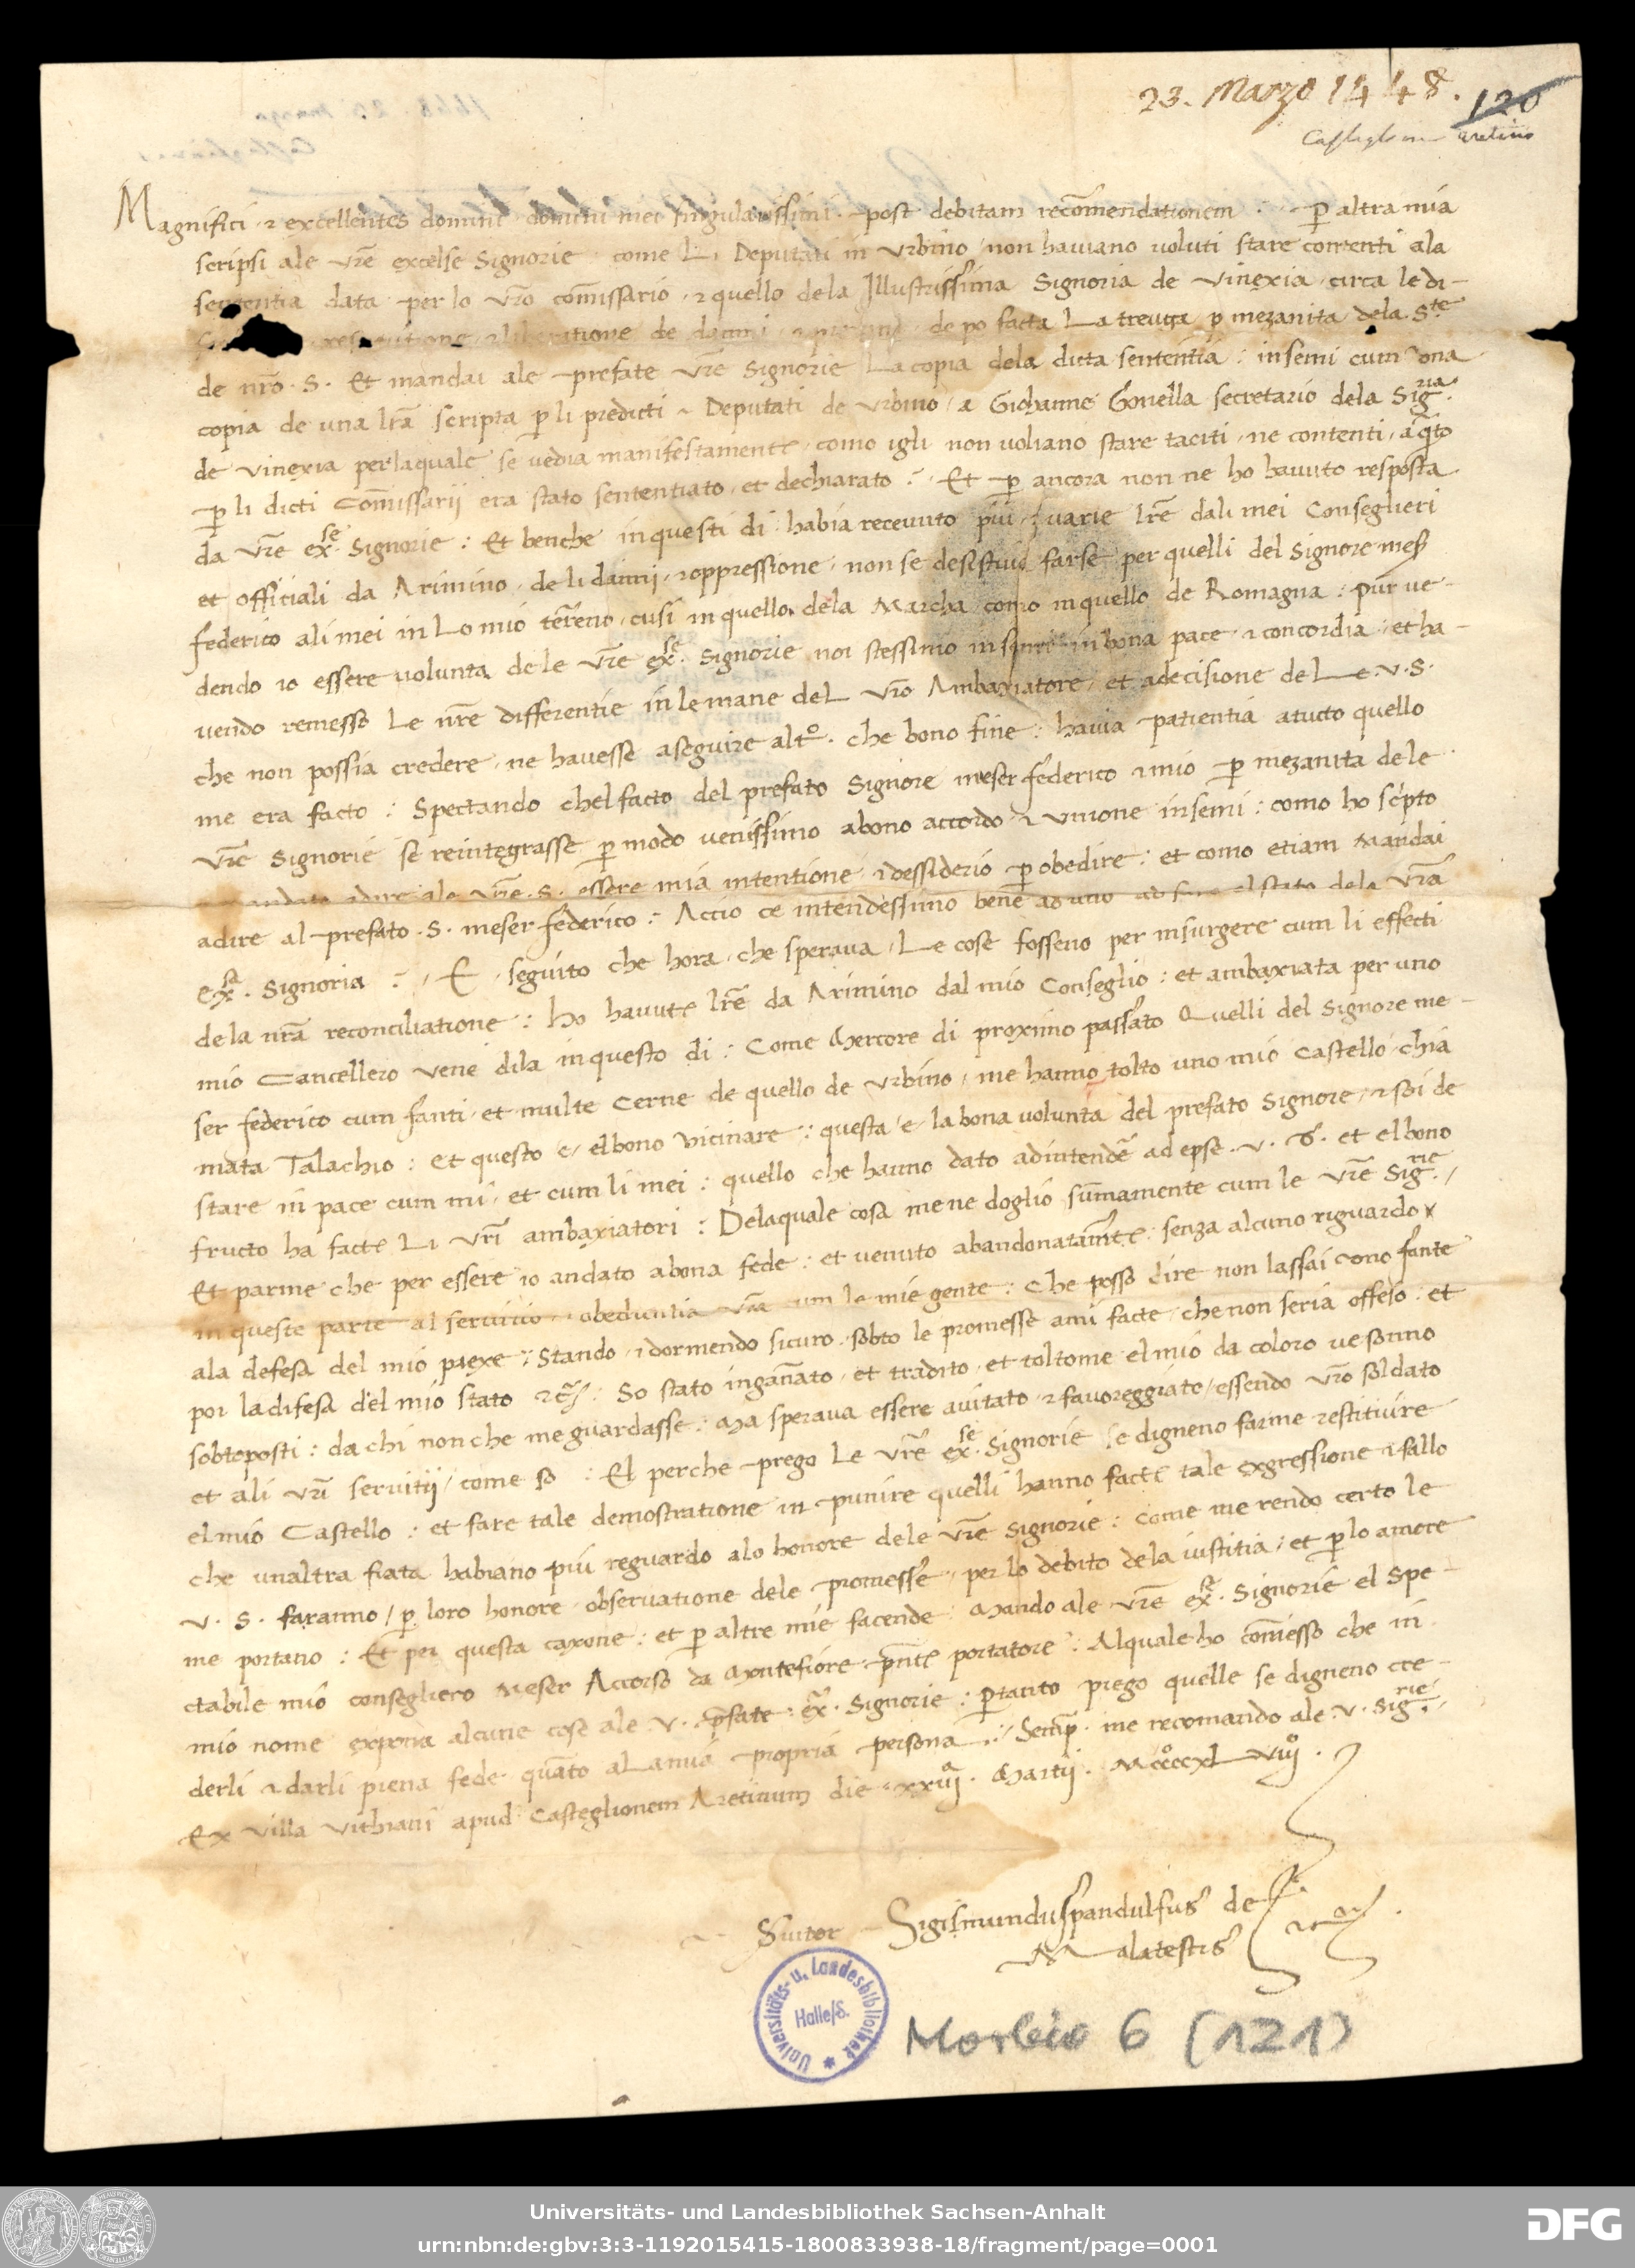 23. Marzo 1448.
120
Castiglione aretino
Magnifici et excellentes domini domini mei singularissimi. post debitam recom̄endationem : p̱ altra mia
scripsi ale vr̄e excelse Signorie. come Li Deputati in Urbino non haviano voluti stare contenti ala
sententia data per lo vr̄o com̄issario, & quello dela Illustrissima Signoria de Vinexia. circa le di-
restitutione & liberatione de danni & de po facta La treuga p̱ mezanita dela S.te
de nr̄o. S. Et mandai ale prefate vr̄e Signorie La copia dela dicta sententia : insemi cum una
copia de una lr̄a scripta p̱ li predicti Deputati de Urbino, a Giohanne Gonella secretario dela Sig.ria
de vinexia perlaquale se vedia manifestamente, como igli non voliano stare taciti, ne contenti, a q̄to
p̱ li dicti Com̄issarii era stato sententiato, et dechiarato : Et p̱ ancora non ne ho havuto resposta
da vr̄e ex.se Signorie : Et benche in questi di habia recevuto piu & varie lr̄e dali mei Conseglieri
et officiali da Arimino, de li danni, & oppressione, non se desistivi farse per quelli del Signore mes̄
federico ali mei in Lo mio ter̄eno, cusi in quello dela Marcha como in quello de Romagna : pur ve-
dendo io essere volunta de le vr̄e ex.se Signorie noi stessimo insemi in bona pace & concordia : et ha-
vendo remesso Le nr̄e differentie in le mane del vr̄o Ambaxiatore, et adecisione de Le. v. S.
che non possia credere, ne havesse aseguire alt.o che bono fine : havia patientia atucto quello
me era facto : Spectando chel facto del prefato Signore meser federico & mio p̱ mezanita dele
vr̄e Signorie se reintegrasse p̱ modo venissimo abono accordo & unione insemi : como ho sc̄pto
mandato adire ale vr̄e. S. essere mia intentione & dessiderio p̱ obedire : et como etiam Mandai
adire al prefato. S. meser federico : Accio ce intendessimo bene ad uno ad fare el stato dela vr̄a
ex.a Signoria : E seguito che hora, che sperava, Le cose fosseno per insurgere cum li effecti
dela nr̄a reconciliatione : Ho havute lr̄e da Arimino dal mio Conseglio : et ambaxiata per uno
mio Cancellero vene dila in questo di : Come Mercore di proximo passato Quelli del Signore me-
ser federico cum fanti, et multe Cerne de quello de Urbino, me hanno tolto uno mio Castello chia
mata Talachio : et questo e, el bono vicinare : questa e, la bona volunta del prefato Signore, & soi de
stare in pace cum mi, et cum li mei : quello che hanno dato adintendr̄e ad epse. v. S. et el bono
fructo ha facte Li vr̄i ambaxiatori : Delaquale cosa me ne doglio sum̄amente cum le vr̄e Sig.rie,
Et parme che per essere io andato abona fede : et venuto abandonatam̄te senza alcuno riguardo
in queste parte al servitio, obedientia vr̄a cum le mie gente : Che posso dire non lassai uno fante
ala defesa del mio paexe : Stando, & dormendo sicuro, sobto le promesse ami facte, che non seria offeso : et
poi la difesa del mio stato &c̄ : So stato ingan̄ato, et tradito, et toltome el mio da coloro ve sonno
sobtoposti : da chi nonche me guardasse : Ma sperava essere aiutato, & favoreggiato, essendo vr̄o soldato
et ali vr̄i servitii, come so : El perche prego Le vr̄e ex.se Signorie se digneno farme restituire
el mio Castello : et fare tale demostratione in punire quelli hanno facte tale exgressione & fallo
che unaltra fiata habiano piu reguardo alo honore dele vr̄e Signorie : Come me rendo certo le
v. S. faranno, p̱ loro honore, observatione dele promesse, per lo debito dela iustitia, et p̱ lo amore
me portano : Et per questa caxone : et p̱ altre mie facende : Mando ale vr̄e ex.a Signorie el Spe-
ctabile mio consegliero Meser Accorso da Montefiore pn̄te portatore : Alquale ho com̄esso che in
mio nome expona alcune cose ale. v. p̄fate. ex. Signorie : p̱tanto prego quelle se digneno cre-
derli & darli piena fede quāto aLa mia propria persona : Semp̱. me recomando ale. v. Sig.rie,
Ex Villa Vithiani apud Casteglionem Aretinum die. xxiij.a Martij. MccccxLviij.o
S̄vitor Sigismunduspandulfus de
Malatestis &c̄.
Universitäts- u. Landesbibliothek
Halle/S.
Morbio 6 (121)
Universitäts- und Landesbibliothek Sachsen-Anhalt
urn:nbn:de:gbv:3:3-1192015415-1800833938-18/fragment/page=0001
DFG